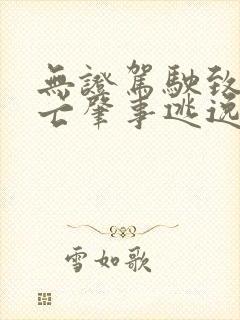 無證駕駛致
亡肇事逃逸
雪如歌